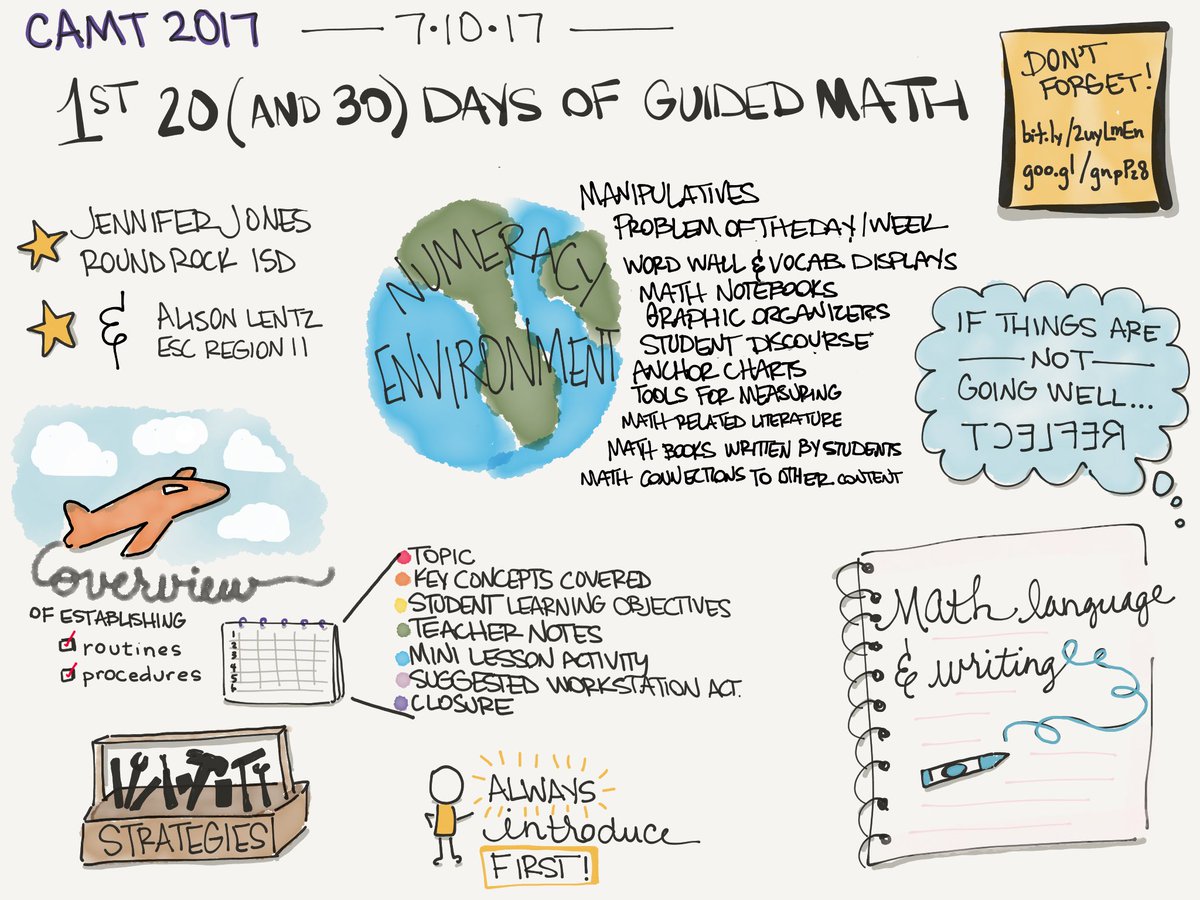 CAMT 2017 — 7·10·17 —
1ST 20 (AND 30) DAYS OF GUIDED MATH
DON'T
FORGET!
bit.ly/2uyLmEn
goo.gl/gnpPz8
JENNIFER JONES
ROUND ROCK ISD
& ALISON LENTZ
ESC REGION 11
NUMERACY
ENVIRONMENT
MANIPULATIVES
PROBLEM OF THE DAY/WEEK
WORD WALL & VOCAB. DISPLAYS
MATH NOTEBOOKS
GRAPHIC ORGANIZERS
STUDENT DISCOURSE
ANCHOR CHARTS
TOOLS FOR MEASURING
MATH-RELATED LITERATURE
MATH BOOKS WRITTEN BY STUDENTS
MATH CONNECTIONS TO OTHER CONTENT
IF THINGS ARE
— NOT —
GOING WELL...
REFLECT
overview
OF ESTABLISHING
routines
procedures
1
2
3
4
5
6
TOPIC
KEY CONCEPTS COVERED
STUDENT LEARNING OBJECTIVES
TEACHER NOTES
MINI LESSON ACTIVITY
SUGGESTED WORKSTATION ACT.
CLOSURE
Math language
& writing
STRATEGIES
ALWAYS
introduce
FIRST!